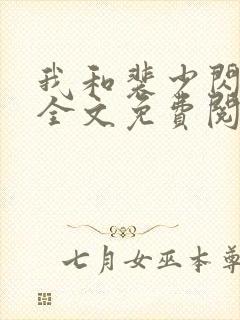 我和裴少閃
全文免費閱
七月女巫本尊